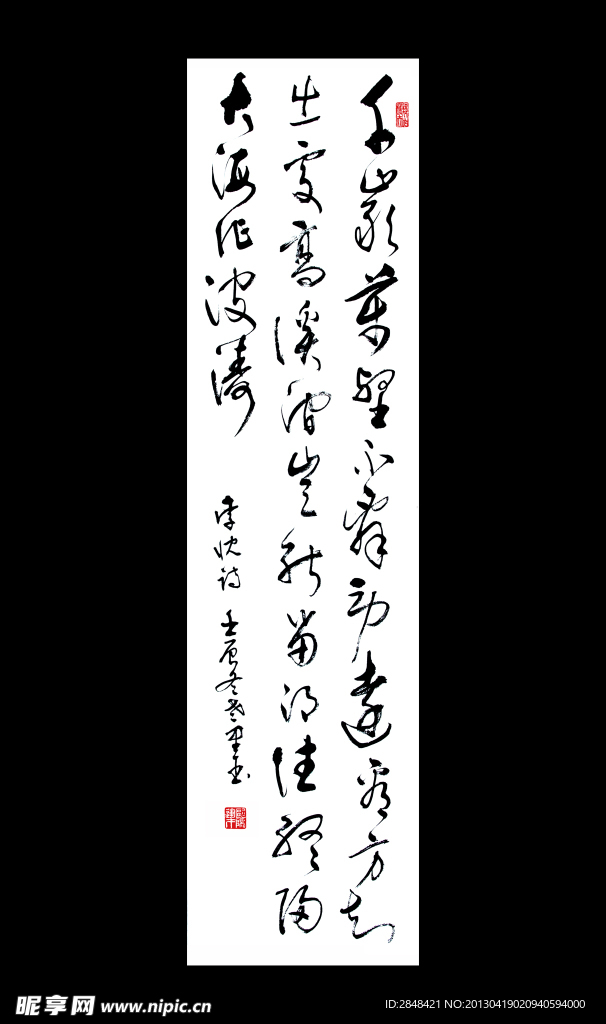 千巖萬壑不辭勞遠看方知
出處高溪澗豈能留得住終歸
大海作波濤
李忱詩 壬辰冬
昵享网 www.nipic.cn
ID:2848421 NO:20130419020940594000